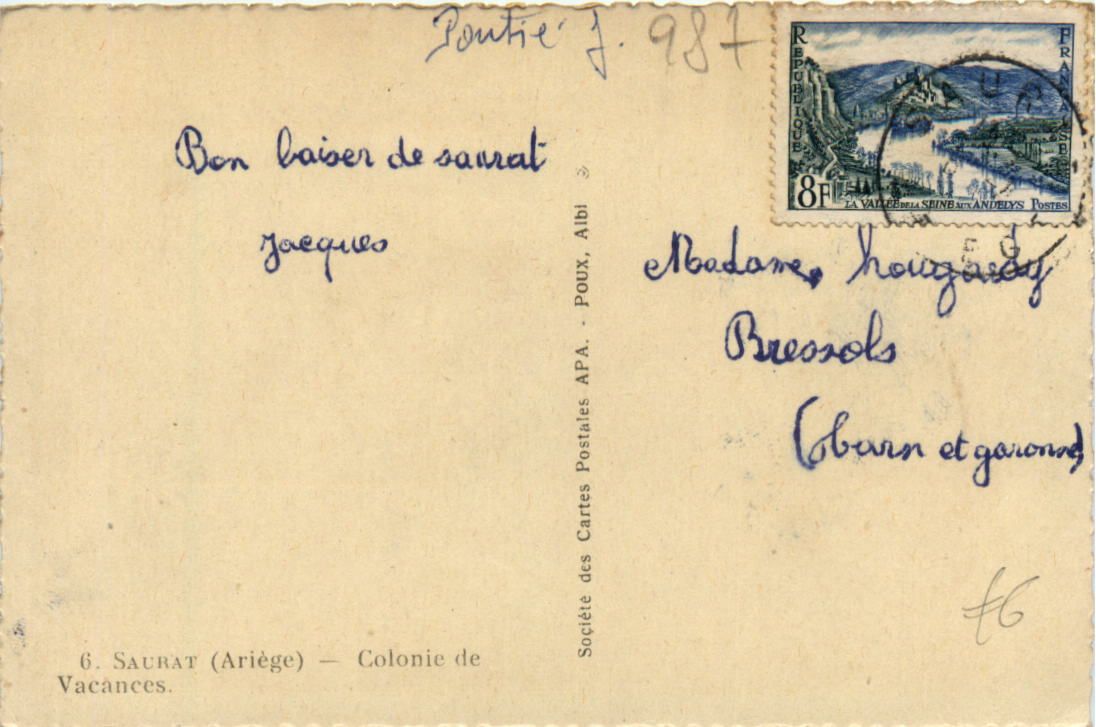 Pontié J. 987
RÉPUBLIQUE FRANÇAISE
8F
LA VALLÉE DE LA SEINE AUX ANDELYS POSTES
Bon baiser de saurat
Jacques
Madame hougardy
Bressols
(tarn et garonne)
Société des Cartes Postales APA. - POUX, Albi
6. SAURAT (Ariège) — Colonie de
Vacances.